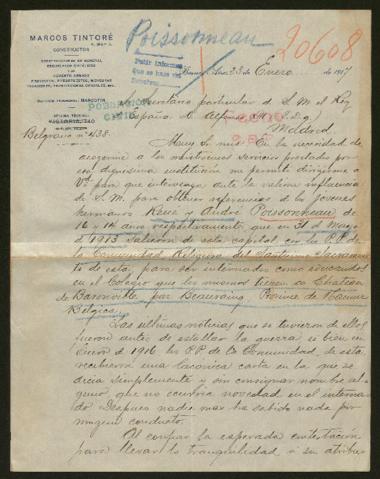 MARCOS TINTORÉ
CONSTRUCTOR
Poissonneau
20608
Pedir informes
Belgrano nº 438
Buenos Aires 23 de Enero de 1917
POBLACION
CIVIL
Secretario particular de S. M. el Rey
España D. Alfonso XIII (q. D. g.)
Madrid
Muy Sr. mio: En la necesidad de
acogerme a los meritorios servicios prestados por
esa dignisima institución me permito dirigirme a
Vd para que intervenga ante la valiosa influencia
de S. M. para obtener referencias de los jovenes
hermanos René y André Poissonneau de
16 y 14 años respectivamente, que en 31 de Mayo
de 1913 salieron de esta capital con los P.P. de
la Comunidad Religiosa del Santisimo Sacramen
to de esta, para ser internados como educandos
en el Colegio que los mismos tienen en Chateau
de Baronville par Beauraing, Province de Namur
Belgica.
Las ultimas noticias que se tuvieron de ellos
fueron antes de estallar la guerra si bien en
Enero de 1916 los P.P. de la Comunidad, de esta
recibieron una laconica carta en la que se
decia simplemente y sin consignar nombre al-
guno que no ocurria novedad en el interna-
do despues nadie mas ha sabido nada por
ningun conducto.
Al confiar la esperada contestación
para llevar la tranquilidad a su atribu